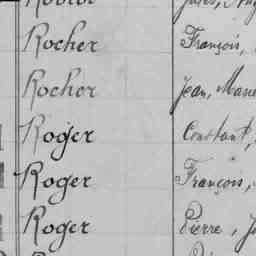 Rocher François,
Rocher Jean, Marie
Roger Constant,
Roger François,
Roger Pierre, J